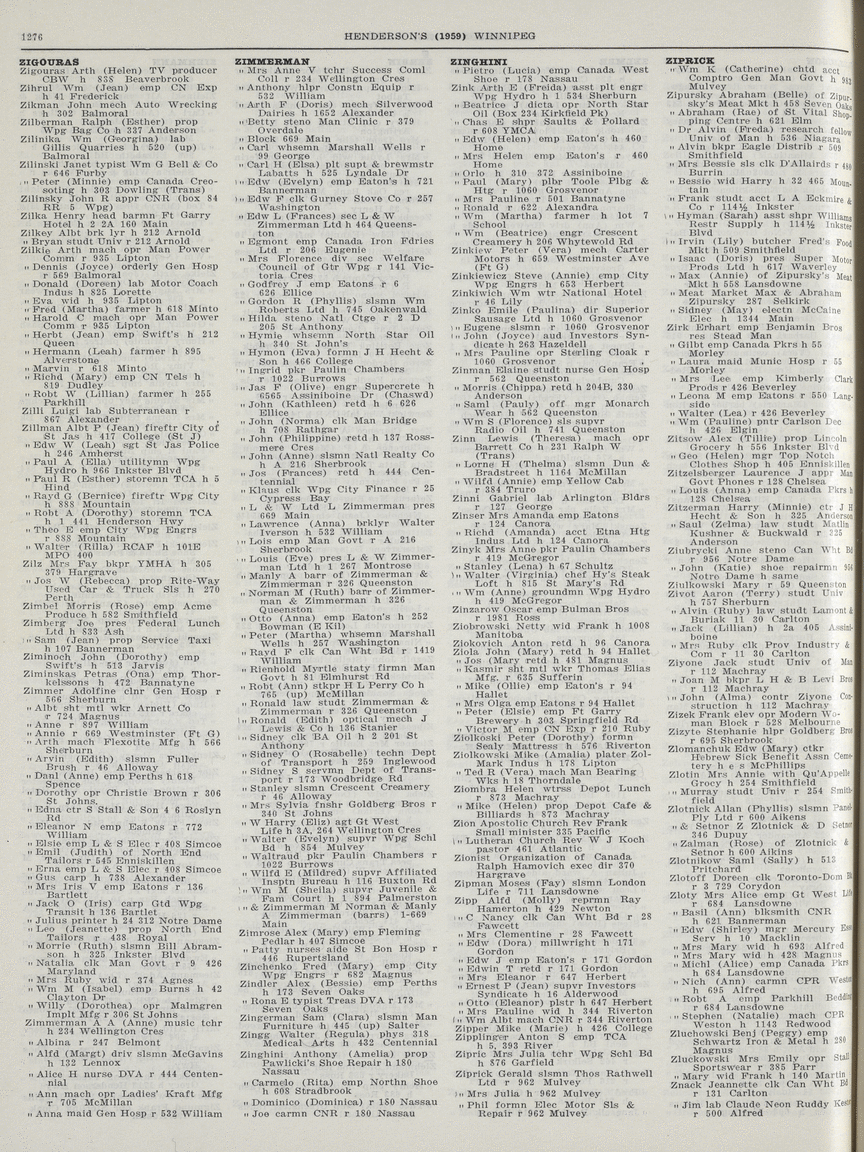 1276
HENDERSON'S (1959) WINNIPEG
ZIGOURAS
Zigouras Arth (Helen) TV producer
CBW h 838 Beaverbrook
Zihrul Wm (Jean) emp CN Exp
h 41 Frederick
Zikman John mech Auto Wrecking
h 302 Balmoral
Zilberman Ralph (Esther) prop
Wpg Bag Co h 337 Anderson
Zilinika Wm (Georgina) lab
Gillis Quarries h 520 (up)
Balmoral
Zilinski Janet typist Wm G Bell & Co
r 646 Furby
" Peter (Minnie) emp Canada Creo-
soting h 303 Dowling (Trans)
Zilinsky John R appr CNR (box 84
RR 5 Wpg)
Zilka Henry head barmn Ft Garry
Hotel h 2 2A 160 Main
Zilkey Albt brk lyr h 212 Arnold
" Bryan studt Univ r 212 Arnold
Zilkie Arth mach opr Man Power
Comm r 935 Lipton
" Dennis (Joyce) orderly Gen Hosp
r 569 Balmoral
" Donald (Doreen) lab Motor Coach
Indus h 825 Lorette
" Eva wid h 935 Lipton
" Fred (Martha) farmer h 618 Minto
" Harold C mach opr Man Power
Comm r 935 Lipton
" Herbt (Jean) emp Swift's h 212
Queen
" Hermann (Leah) farmer h 895
Alverstone
" Marvin r 618 Minto
" Richd (Mary) emp CN Tels h
819 Dudley
" Robt W (Lillian) farmer h 255
Parkhill
Zilli Luigi lab Subterranean r
867 Alexander
Zillman Albt P (Jean) fireftr City of
St Jas h 417 College (St J)
" Edw W (Leah) sgt St Jas Police
h 246 Amherst
" Paul A (Ella) utilitymn Wpg
Hydro h 966 Inkster Blvd
" Paul R (Esther) storemn TCA h 5
Hind
" Rayd G (Bernice) fireftr Wpg City
h 888 Mountain
" Robt A (Dorothy) storemn TCA
h 1 441 Henderson Hwy
" Theo E emp City Wpg Engrs
r 888 Mountain
" Walter (Rilla) RCAF h 101E
MPO 400
Zilz Mrs Fay bkpr YMHA h 305
379 Hargrave
" Jos W (Rebecca) prop Rite-Way
Used Car & Truck Sls h 270
Perth
Zimbel Morris (Rose) emp Acme
Produce h 582 Smithfield
Zimberg Joe pres Federal Lunch
Ltd h 833 Ash
" Sam (Jean) prop Service Taxi
h 107 Bannerman
Ziminoch John (Dorothy) emp
Swift's h 513 Jarvis
Ziminskas Petras (Ona) emp Thor-
kelssons h 472 Bannatyne
Zimmer Adolfine clnr Gen Hosp r
566 Sherburn
" Albt sht mtl wkr Arnett Co
r 724 Magnus
" Anne r 897 William
" Annie r 669 Westminster (Ft G)
" Arth mach Flexotite Mfg h 566
Sherburn
" Arvin (Edith) slsmn Fuller
Brush r 46 Alloway
" Danl (Anne) emp Perths h 618
Spence
" Dorothy opr Christie Brown r 306
St Johns.
" Edna ctr S Stall & Son 4 6 Roslyn
Rd
" Eleanor N emp Eatons r 772
William
" Elsie emp L & S Elec r 408 Simcoe
" Emil (Judith) of North End
Tailors r 545 Enniskillen
" Erna emp L & S Elec r 408 Simcoe
" Gus carp h 738 Alexander
" Mrs Iris V emp Eatons r 136
Bartlett
" Jack O (Iris) carp Gtd Wpg
Transit h 136 Bartlet
" Julius printer h 24 312 Notre Dame
" Leo (Jeanette) prop North End
Tailors r 438 Royal
" Morrie (Ruth) slsmn Bill Abram-
son h 325 Inkster Blvd
" Natalia clk Man Govt r 9 426
Maryland
" Mrs Ruby wid r 374 Agnes
" Wm M (Isabel) emp Burns h 42
Clayton Dr
" Willy (Dorothea) opr Malmgren
Implt Mfg r 306 St Johns
Zimmerman A A (Anne) music tchr
h 234 Wellington Cres
" Albina r 247 Belmont
" Alfd (Margt) driv slsmn McGavins
h 132 Lennox
" Alice H nurse DVA r 444 Centen-
nial
" Ann mach opr Ladies' Kraft Mfg
r 705 McMillan
" Anna maid Gen Hosp r 532 William
ZIMMERMAN
" Mrs Anne V tchr Success Coml
Coll r 234 Wellington Cres
" Anthony hlpr Constn Equip r
532 William
" Arth F (Doris) mech Silverwood
Dairies h 1652 Alexander
" Betty steno Man Clinic r 379
Overdale
" Block 669 Main
" Carl whsemn Marshall Wells r
99 George
" Carl H (Elsa) plt supt & brewmstr
Labatts h 525 Lyndale Dr
" Edw (Evelyn) emp Eaton's h 721
Bannerman
" Edw F clk Gurney Stove Co r 257
Washington
" Edw L (Frances) sec L & W
Zimmerman Ltd h 464 Queens-
ton
" Egmont emp Canada Iron Fdries
Ltd r 206 Eugenie
" Mrs Florence div sec Welfare
Council of Gtr Wpg r 141 Vic-
toria Cres
" Godfrey J emp Eatons r 6
626 Ellice
" Gordon R (Phyllis) slsmn Wm
Roberts Ltd h 745 Oakenwald
" Hilda steno Natl Ctge r 2 D
205 St Anthony
" Hymie whsemn North Star Oil
h 340 St John's
" Hymon (Eva) formn J H Hecht &
Son h 466 College
" Ingrid pkr Paulin Chambers
r 1022 Burrows
" Jas F (Olive) engr Supercrete h
6565 Assiniboine Dr (Chaswd)
" John (Kathleen) retd h 6 626
Ellice
" John (Norma) clk Man Bridge
h 708 Rathgar
" John (Philippine) retd h 137 Ross-
mere Cres
" John (Anne) slsmn Natl Realty Co
h A 216 Sherbrook
" Jos (Frances) retd h 444 Cen-
tennial
" Klaus clk Wpg City Finance r 25
Cypress Bay
" L & W Ltd L Zimmerman pres
669 Main
" Lawrence (Anna) brklyr Walter
Iverson h 532 William
" Lois emp Man Govt r A 216
Sherbrook
" Louis (Eve) pres L & W Zimmer-
man Ltd h 1 267 Montrose
" Manly A barr of Zimmerman &
Zimmerman r 326 Queenston
" Norman M (Ruth) barr of Zimmer-
man & Zimmerman h 326
Queenston
" Otto (Anna) emp Eaton's h 252
Bowman (E Kil)
" Peter (Martha) whsemn Marshall
Wells h 257 Washington
" Rayd F clk Can Wht Bd r 1419
William
" Rienhold Myrtle staty firmn Man
Govt h 81 Elmhurst Rd
" Robt (Ann) stkpr H L Perry Co h
765 (up) McMillan
" Ronald law studt Zimmerman &
Zimmerman r 326 Queenston
" Ronald (Edith) optical mech J
Lewis & Co h 136 Stanier
" Sidney clk BA Oil h 2 201 St
Anthony
" Sidney O (Rosabelle) techn Dept
of Transport h 259 Inglewood
" Sidney S servmn Dept of Trans-
port r 173 Woodbridge Rd
" Stanley slsmn Crescent Creamery
r 46 Alloway
" Mrs Sylvia fnshr Goldberg Bros r
340 St Johns
" W Harry (Eliz) agt Gt West
Life h 3A, 264 Wellington Cres
" Walter (Evelyn) supvr Wpg Schl
Bd h 854 Mulvey
" Waltraud pkr Paulin Chambers r
1022 Burrows
" Wilfd E (Mildred) supvr Affiliated
Insptn Bureau h 116 Buxton Rd
" Wm M (Sheila) supvr Juvenile &
Fam Court h 1 894 Palmerston
" & Zimmerman M Norman & Manly
A Zimmerman (barrs) 1-669
Main
Zimrose Alex (Mary) emp Fleming
Pedlar h 407 Simcoe
" Patty nurses aide St Bon Hosp r
446 Rupertsland
Zinchenko Fred (Mary) emp City
Wpg Engrs r 682 Magnus
Zindler Alex (Bessie) emp Perths
h 173 Seven Oaks
" Rona E typist Treas DVA r 173
Seven Oaks
Zingerman Sam (Clara) slsmn Man
Furniture h 445 (up) Salter
Zingg Walter (Regula) phys 318
Medical Arts h 432 Centennial
Zinghini Anthony (Amelia) prop
Pawlicki's Shoe Repair h 180
Nassau
" Carmelo (Rita) emp Northn Shoe
h 608 Stradbrook
" Dominico (Dominica) r 180 Nassau
" Joe carmn CNR r 180 Nassau
ZINGHINI
" Pietro (Lucia) emp Canada West
Shoe r 178 Nassau
Zink Arth E (Freida) asst plt engr
Wpg Hydro h 1 534 Sherburn
" Beatrice J dicta opr North Star
Oil (Box 234 Kirkfield Pk)
" Chas E shpr Saults & Pollard
r 608 YMCA
" Edw (Helen) emp Eaton's h 460
Home
" Mrs Helen emp Eaton's r 460
Home
" Orlo h 310 372 Assiniboine
" Paul (Mary) plbr Toole Plbg &
Htg r 1060 Grosvenor
" Mrs Pauline r 501 Bannatyne
" Ronald r 622 Alexandra
" Wm (Martha) farmer h lot 7
School
" Wm (Beatrice) engr Crescent
Creamery h 206 Whytewold Rd
Zinkiew Peter (Vera) mech Carter
Motors h 659 Westminster Ave
(Ft G)
Zinkiewicz Steve (Annie) emp City
Wpg Engrs h 653 Herbert
Zinkiwich Wm wtr National Hotel
r 46 Lily
Zinko Emile (Paulina) dir Superior
Sausage Ltd h 1060 Grosvenor
" Eugene slsmn r 1060 Grosvenor
" John (Joyce) aud Investors Syn-
dicate h 263 Hazeldell
" Mrs Pauline opr Sterling Cloak r
1060 Grosvenor
Zinman Elaine studt nurse Gen Hosp
r 562 Queenston
" Morris (Chippa) retd h 204B, 330
Anderson
" Saml (Pauly) off mgr Monarch
Wear h 562 Queenston
" Wm S (Florence) sls supvr
Radio Oil h 741 Queenston
Zinn Lewis (Theresa) mach opr
Barrett Co h 231 Ralph W
(Trans)
" Lorne H (Thelma) slsmn Dun &
Bradstreet h 1164 McMillan
" Wilfd (Annie) emp Yellow Cab
r 384 Truro
Zinni Gabriel lab Arlington Bldrs
r 127 George
Zinser Mrs Amanda emp Eatons
r 124 Canora
" Richd (Amanda) acct Etna Htg
Indus Ltd h 124 Canora
Zinyk Mrs Anne pkr Paulin Chambers
r 419 McGregor
" Stanley (Lena) h 67 Schultz
" Walter (Virginia) chef Hy's Steak
Loft h 815 St Mary's Rd
" Wm (Anne) groundmn Wpg Hydro
h 419 McGregor
Zinzarow Oscar emp Bulman Bros
r 1981 Ross
Ziobrowski Netty wid Frank h 1008
Manitoba
Ziokovich Anton retd h 96 Canora
Ziola John (Mary) retd h 94 Hallet
" Jos (Mary) retd h 481 Magnus
" Kasmir sht mtl wkr Thomas Elias
Mfg. r 635 Sufferin
" Mike (Ollie) emp Eaton's r 94
Hallet
" Mrs Olga emp Eatons r 94 Hallet
" Peter (Elsie) emp Ft Garry
Brewery h 303 Springfield Rd
" Victor M emp CN Exp r 210 Ruby
Ziolkoski Peter (Dorothy) formn
Sealy Mattress h 576 Riverton
Ziolkowski Mike (Amalia) plater Zol-
Mark Indus h 178 Lipton
" Ted R (Vera) mach Man Bearing
Wks h 18 Thorndale
Ziombra Helen wtrss Depot Lunch
r 873 Machray
" Mike (Helen) prop Depot Cafe &
Billiards h 873 Machray
Zion Apostolic Church Rev Frank
Small minister 335 Pacific
" Lutheran Church Rev W J Koch
pastor 461 Atlantic
Zionist Organization of Canada
Ralph Hamovich exec dir 370
Hargrave
Zipman Moses (Fay) slsmn London
Life r 711 Lansdowne
Zipp Alfd (Molly) reprmn Ray
Hamerton h 429 Newton
" C Nancy clk Can Wht Bd r 28
Fawcett
" Mrs Clementine r 28 Fawcett
" Edw (Dora) millwright h 171
Gordon
" Edw J emp Eaton's r 171 Gordon
" Edwin T retd r 171 Gordon
" Mrs Eleanor r 647 Herbert
" Ernest P (Jean) supvr Investors
Syndicate h 16 Alderwood
" Otto (Eleanor) plstr h 647 Herbert
" Mrs Pauline wid h 344 Riverton
" Wm Albt mach CNR r 344 Riverton
Zipper Mike (Marie) h 426 College
Zipplinger Anton S emp TCA
h 5, 393 River
Zipric Mrs Julia tchr Wpg Schl Bd
h 876 Garfield
Ziprick Gerald slsmn Thos Rathwell
Ltd r 962 Mulvey
" Mrs Julia h 962 Mulvey
" Phil formn Elec Motor Sls &
Repair r 962 Mulvey
ZIPRICK
" Wm K (Catherine) chtd acct
Comptro Gen Man Govt h 982
Mulvey
Zipursky Abraham (Belle) of Zipur-
sky's Meat Mkt h 458 Seven Oaks
" Abraham (Rae) of St Vital Shop-
ping Centre h 621 Elm
" Dr Alvin (Freda) research fellow
Univ of Man h 536 Niagara
" Alvin bkpr Eagle Distrib r 509
Smithfield
" Mrs Bessie sls clk D'Allairds r 480
Burrin
" Bessie wid Harry h 32 465 Moun-
tain
" Frank studt acct L A Eckmire &
Co r 114½ Inkster
" Hyman (Sarah) asst shpr Williams
Restr Supply h 114½ Inkster
Blvd
" Irvin (Lily) butcher Fred's Food
Mkt h 509 Smithfield
" Isaac (Doris) pres Super Motor
Prods Ltd h 617 Waverley
" Max (Annie) of Zipursky's Meat
Mkt h 558 Lansdowne
" Meat Market Max & Abraham
Zipursky 287 Selkirk
" Sidney (May) electn McCaine
Elec h 1344 Main
Zirk Erhart emp Benjamin Bros
res Stead Man
" Gilbt emp Canada Pkrs h 55
Morley
" Laura maid Munic Hosp r 55
Morley
" Mrs Lee emp Kimberly Clark
Prods r 426 Beverley
" Leona M emp Eatons r 550 Lang-
side
" Walter (Lea) r 426 Beverley
" Wm (Pauline) pntr Carlson Dec
h 426 Elgin
Zitsow Alex (Tillie) prop Lincoln
Grocery h 556 Inkster Blvd
" Geo (Helen) mgr Top Notch
Clothes Shop h 405 Enniskillen
Zitzelsberger Laurence J appr Man
Govt Phones r 128 Chelsea
" Louis (Anna) emp Canada Pkrs h
128 Chelsea
Zitzerman Harry (Minnie) ctr J H
Hecht & Son h 325 Anderson
" Saul (Zelma) law studt Matlin
Kushner & Buckwold r 325
Anderson
Ziubrycki Anne steno Can Wht Bd
r 956 Notre Dame
" John (Katie) shoe repairmn 956
Notre Dame h same
Ziulkowski Mary r 59 Queenston
Zivot Aaron (Terry) studt Univ
h 757 Sherburn
" Alvin (Ruby) law studt Lamont &
Buriak 11 30 Carlton
" Jack (Lillian) h 2a 405 Assini-
boine
" Mrs Ruby clk Prov Industry &
Com r 11 30 Carlton
Ziyone Jack studt Univ of Man
r 112 Machray
" Joan M bkpr L H & B Levi Bros
r 112 Machray
" John (Alma) contr Ziyone Con-
struction h 112 Machray
Zizek Frank elev opr Modern Wo-
man Block r 528 Melbourne
Zizyte Stephanie hlpr Goldberg Bros
r 695 Sherbrook
Zlomanchuk Edw (Mary) ctkr
Hebrew Sick Benefit Assn Ceme-
tery h e s McPhillips
Zlotin Mrs Annie with Qu'Appelle
Grocy h 254 Smithfield
" Murray studt Univ r 254 Smith-
field
Zlotnick Allan (Phyllis) slsmn Panel
Ply Ltd r 600 Aikens
" & Setnor Z Zlotnick & D Setnor
346 Dupuy
" Zalman (Rose) of Zlotnick &
Setnor h 600 Aikins
Zlotnikow Saml (Sally) h 513
Pritchard
Zlotoff Doreen clk Toronto-Dom Bk
r 3 729 Corydon
Zloty Mrs Alice emp Gt West Life
r 684 Lansdowne
" Basil (Ann) blksmith CNR
h 621 Bannerman
" Edw (Shirley) mgr Mercury Ess
Serv h 10 Macklin
" Mrs Mary wid h 693 Alfred
" Mrs Mary wid h 428 Magnus
" Michl (Alice) emp Canada Pkrs
h 684 Lansdowne
" Nich (Ann) carmn CPR Weston
h 695 Alfred
" Robt A emp Parkhill Bedding
r 684 Lansdowne
" Stephen (Natalie) mach CPR
Weston h 1143 Redwood
Zluchowski Benj (Peggy) emp
Schwartz Iron & Metal h 280
Magnus
Zluckowski Mrs Emily opr Stall
Sportswear r 385 Parr
" Mary wid Frank h 140 Martin
Znack Jeannette clk Can Wht Bd
r 131 Carlton
" Jim lab Claude Neon Ruddy Kester
r 500 Alfred